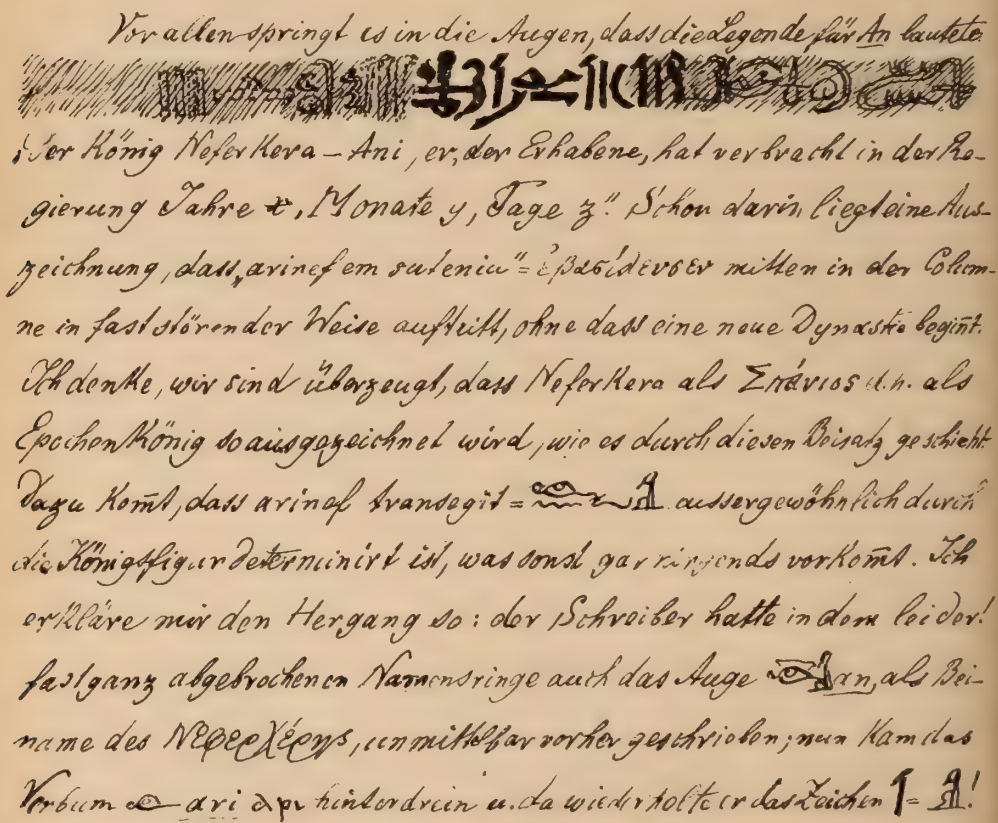 Vor allen springt es in die Augen, dass die Legende für An lautete:
Der König Neferkera – Ani, er, der Erhabene, hat verbracht in der Re-
gierung Jahre x, Monate y, Tage z". Schon darin liegt eine Aus-
zeichnung, dass „arinef em suteniu" = ἐβασίλευσεν mitten in der Colum-
ne in fast störender Weise auftritt, ohne dass eine neue Dynastie begin̅t.
Ich denke, wir sind überzeugt, dass Neferkera als Σπάνιος d.h. als
Epochenkönig so ausgezeichnet wird, wie es durch diesen Beisatz geschieht
Dazu kom̅t, dass arinef transegit = aussergewöhnlich durch
die Königsfigur determinirt ist, was sonst gar nirgends vorkom̅t. Ich
erkläre mir den Hergang so: der Schreiber hatte in dem leider!
fast ganz abgebrochenen Namensringe auch das Auge an, als Bei-
name des Νεφερχέρης, unmittelbar vorher geschrieben; nun kam das
Verbum ari ⲁⲣⲓ hinterdrein u. da wiederholte er das Zeichen = !